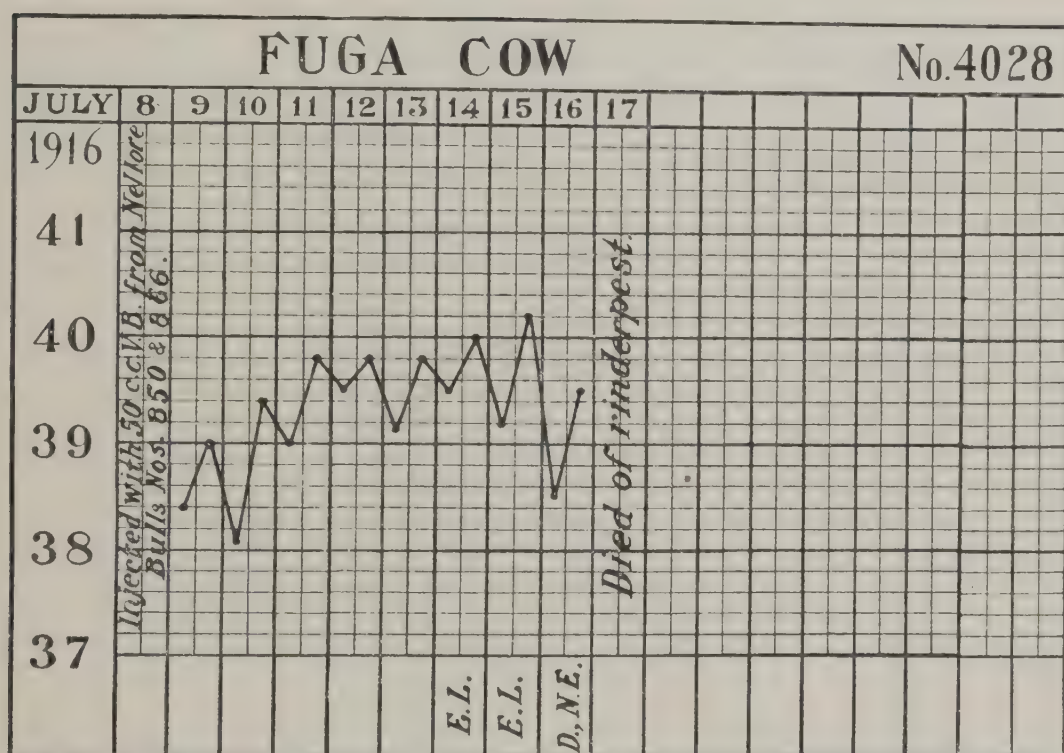 FUGA COW No.4028
JULY 8 9 10 11 12 13 14 15 16 17
1916
41
40
39
38
37
Injected with 50 c.c.V.B. from Nellore
Bulls Nos. 850 & 866.
Died of rinderpest.
E.L.
E.L.
D., N.E.